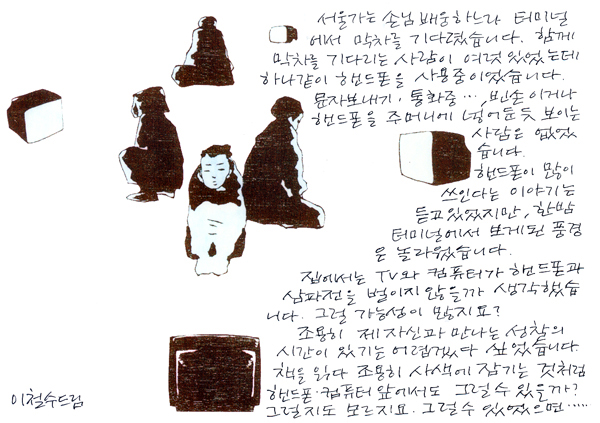 서울가는 손님 배웅하느라 터미널
에서 막차를 기다렸습니다. 함께
막차를 기다리는 사람이 여럿 있었는데
하나같이 핸드폰을 사용중이었습니다.
문자보내기, 통화중…, 빈손이거나
핸드폰을 주머니에 넣어둔듯 보이는
사람은 없었
습니다.
핸드폰이 많이
쓰인다는 이야기는
듣고있었지만, 한밤
터미널에서 보게된 풍경
은 놀라웠습니다.
집에서는 TV와 컴퓨터가 핸드폰과
삼파전을 벌이지 않을까 생각했습
니다. 그럴 가능성이 많지요?
조용히 제 자신과 만나는 성찰의
시간이 있기는 어렵겠다 싶었습니다.
책을 읽다 조용히 사색에 잠기는 것처럼
핸드폰·컴퓨터 앞에서도 그럴 수 있을까?
그럴지도 모르지요. 그럴 수 있었으면……
이철수드림